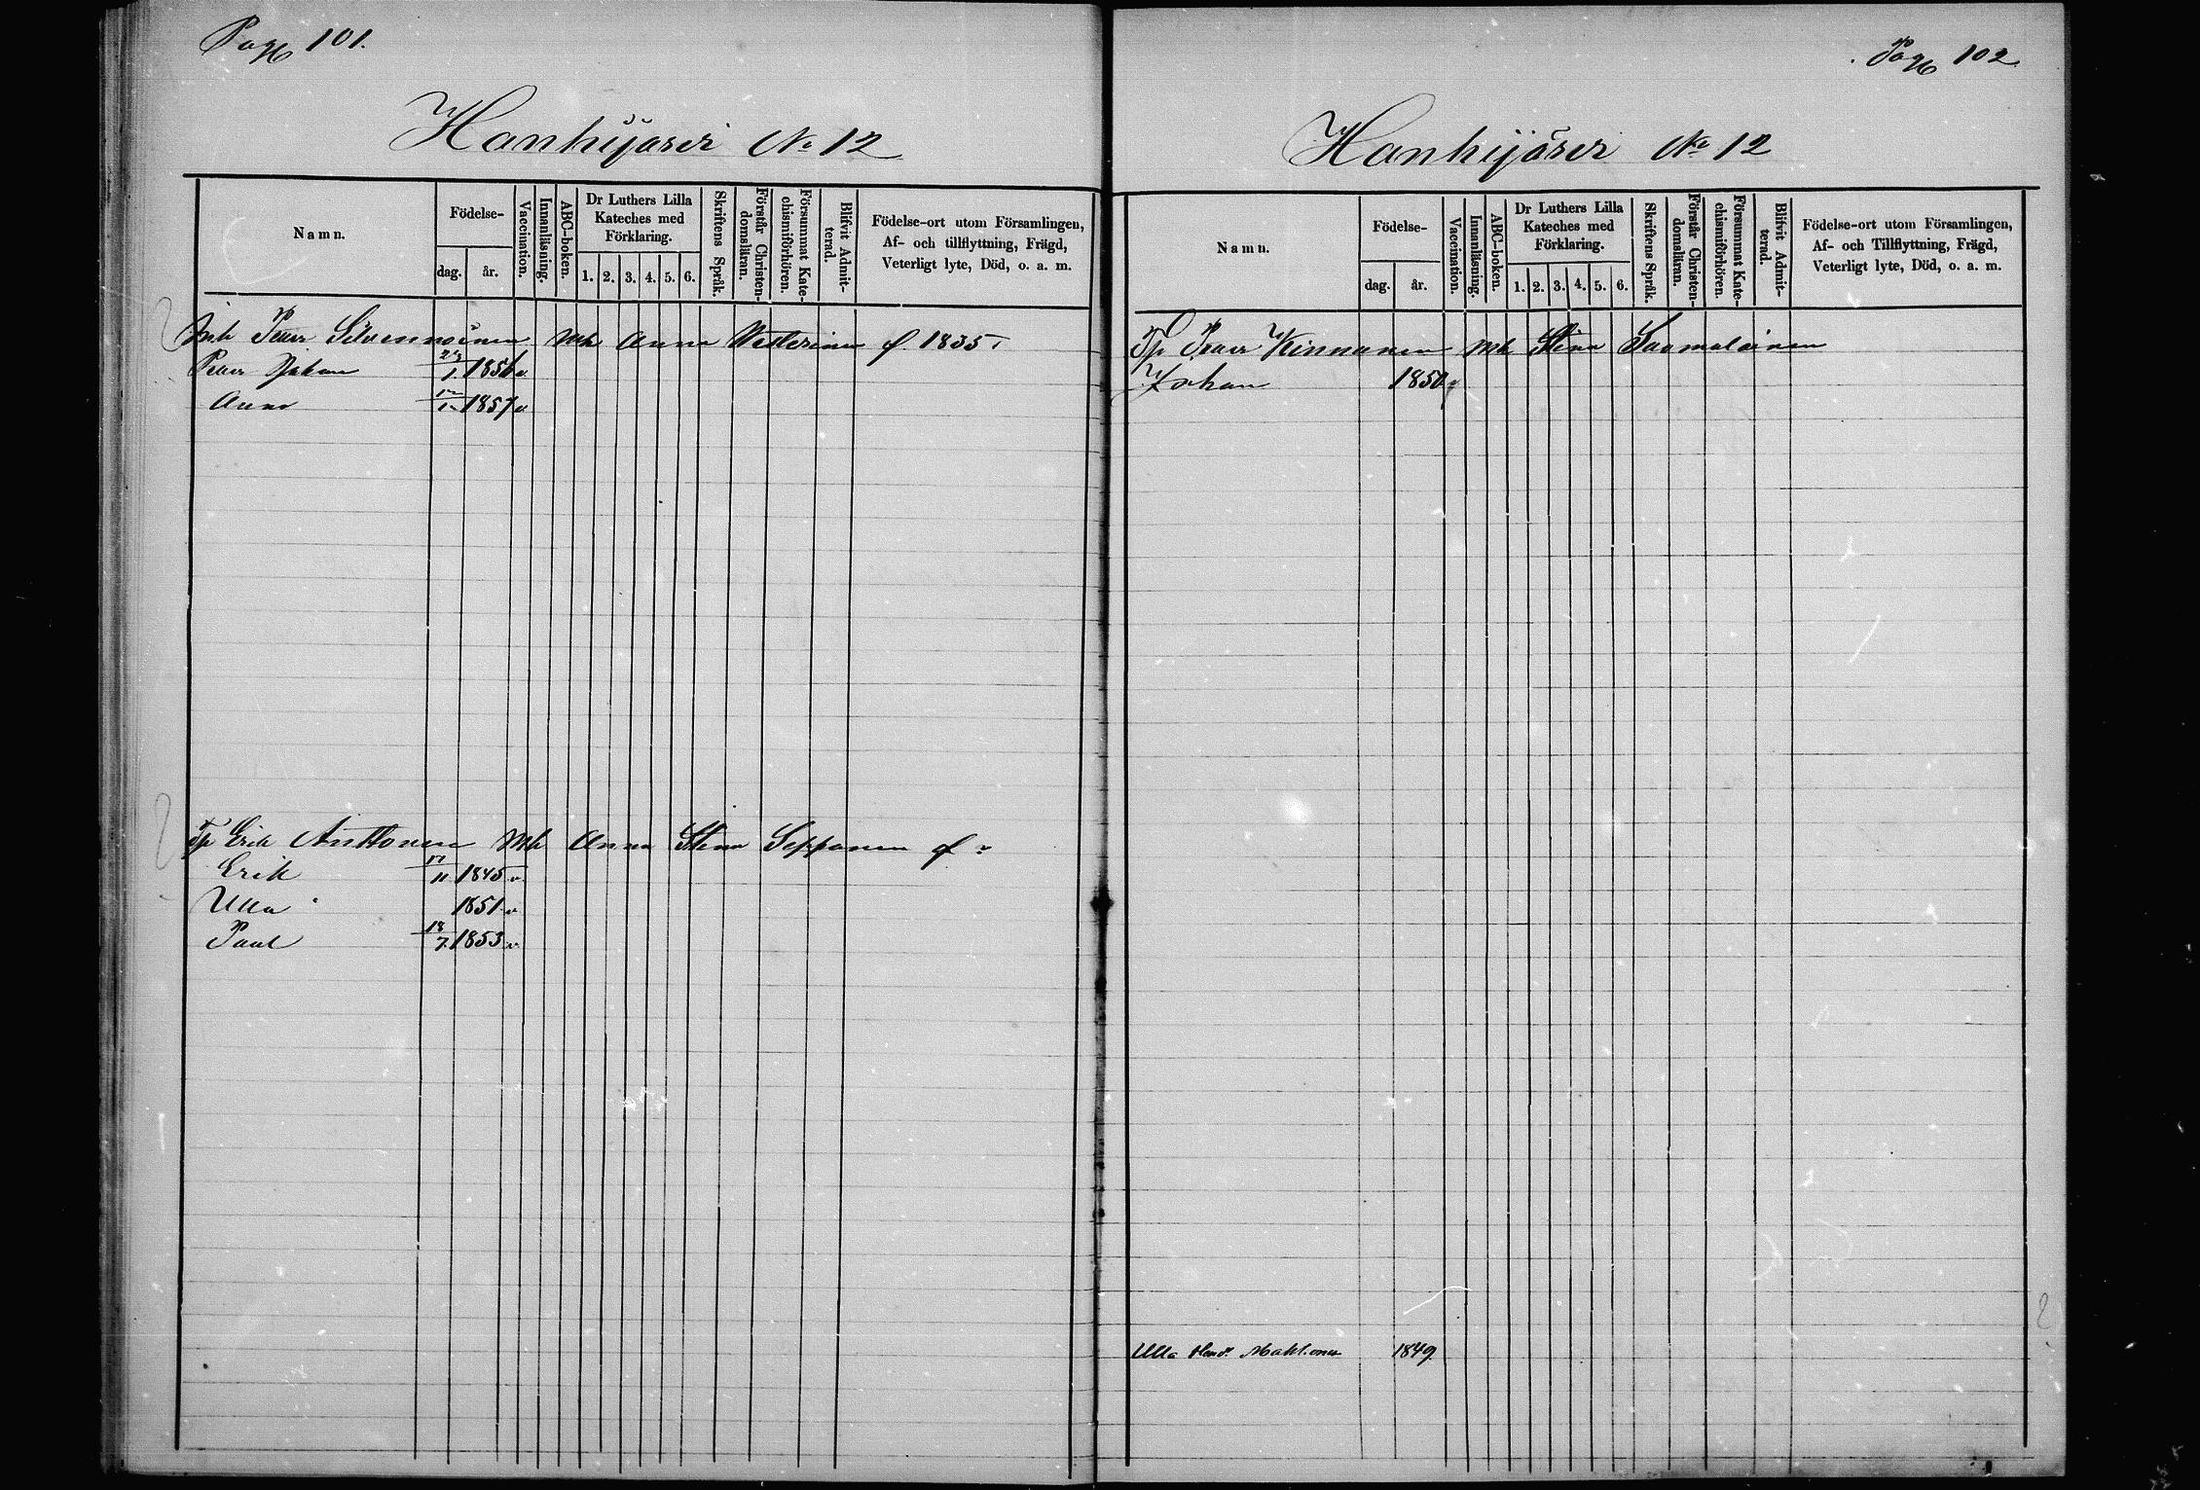 Pag 101.
Hanhijärvi No 12
Namn.
Födelse-
dag.
år.
Vaccination.
Innanläsning.
ABC-boken.
Dr Luthers Lilla Kateches med Förklaring.
1. 2. 3. 4. 5. 6.
Skriftens Språk.
Förstår Christen-domsläran.
Försummat Kate-chismiförhören.
Blifvit Admit-terad.
Födelse-ort utom Församlingen,
Af- och tillflyttning, Frägd,
Veterligt lyte, Död, o. a. m.
Petter Silvennoinen Anna Westerinen f. 1835
Petter Johan 1856
Anna 1857
Erik Anttonen Anna Stina Seppänen f.
Erik 17/11 1845 v
Ulla 1851 v
Paul 18/7 1853 v
Pag 102
Hanhijärvi No 12
Namn.
Födelse-
dag.
år.
Vaccination.
Innanläsning.
ABC-boken.
Dr Luthers Lilla Kateches med Förklaring.
1. 2. 3. 4. 5. 6.
Skriftens Språk.
Förstår Christen-domsläran.
Försummat Kate-chismiförhören.
Blifvit Admit-terad.
Födelse-ort utom Församlingen,
Af- och Tillflyttning, Frägd,
Veterligt lyte, Död, o. a. m.
Kinnunen Stina Suomalainen
Johan 1850
Ulla 1849